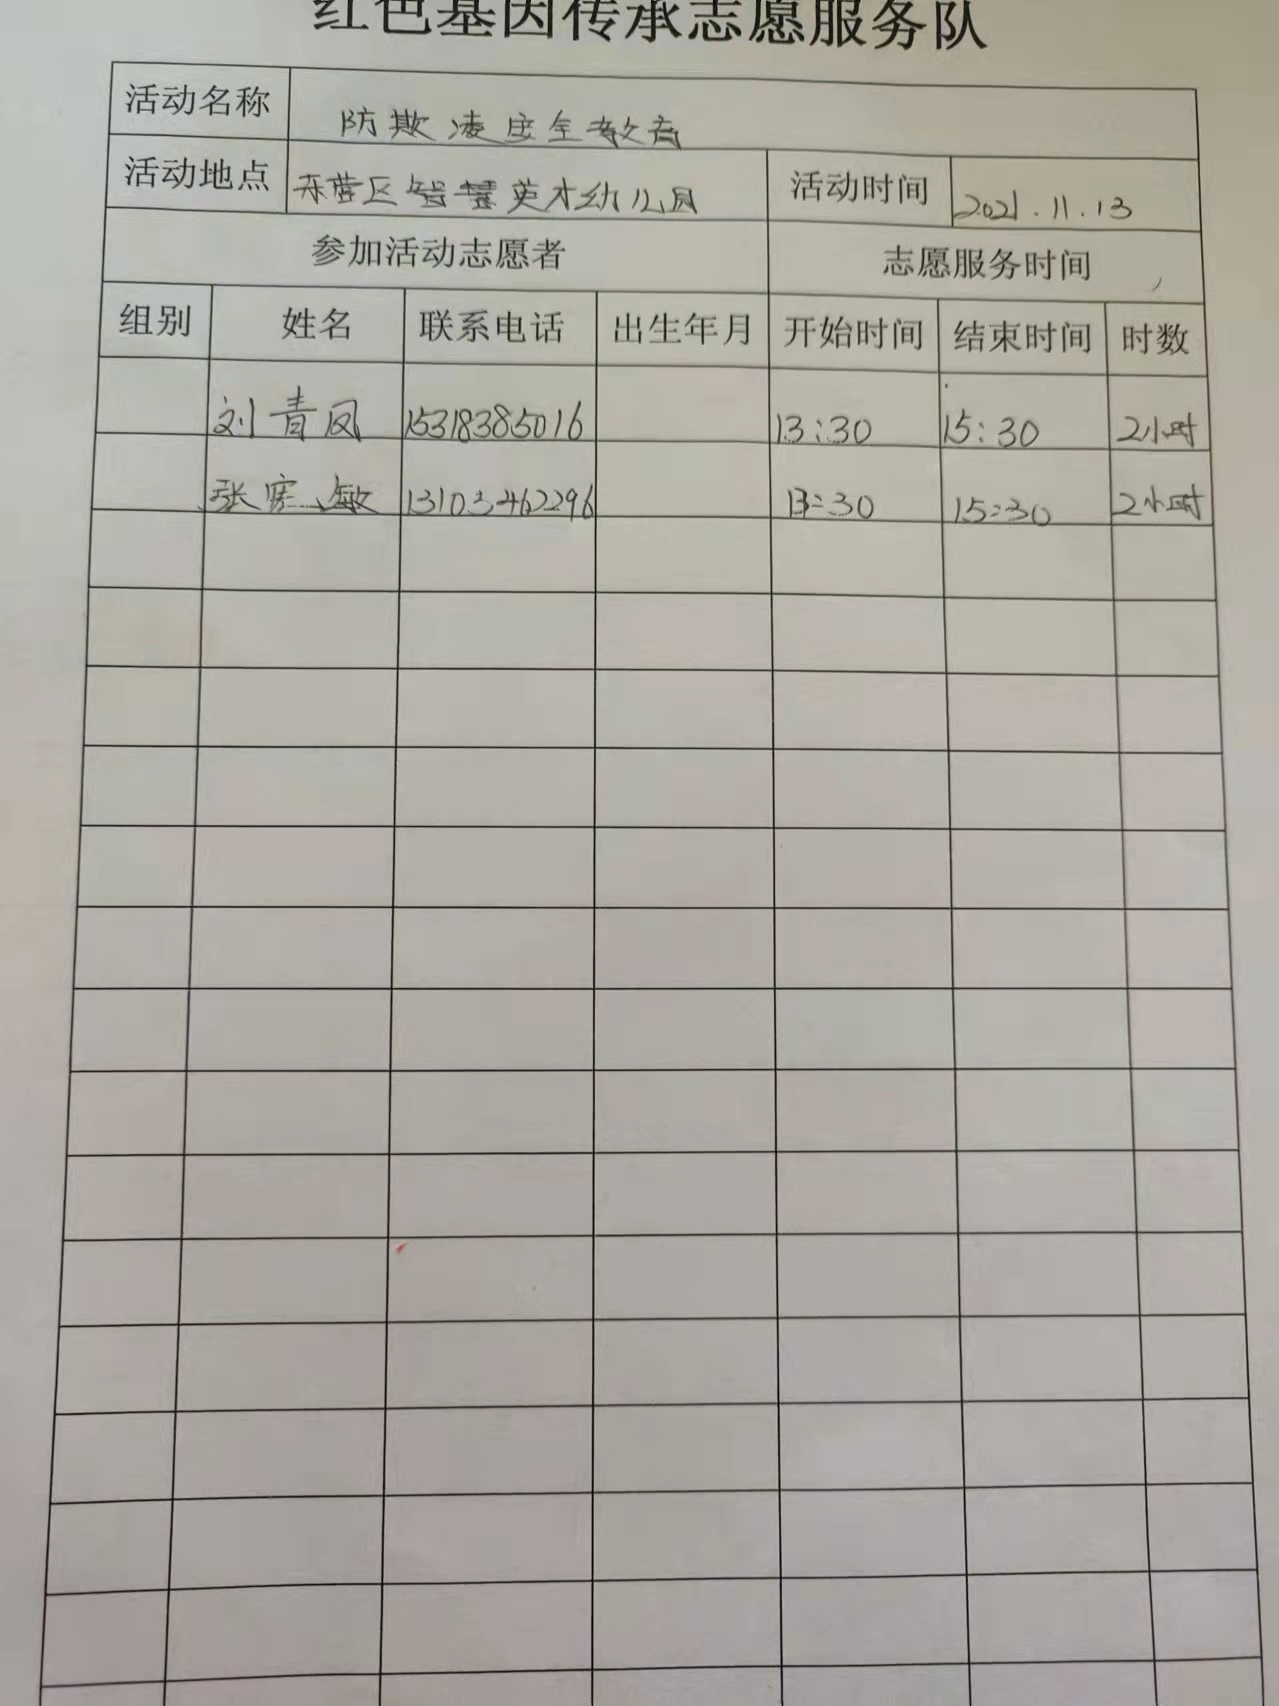 红色基因传承志愿服务队
活动名称 防欺凌安全教育
活动地点 东营区智慧英才幼儿园 活动时间 2021.11.13
参加活动志愿者 志愿服务时间
组别 姓名 联系电话 出生年月 开始时间 结束时间 时数
刘青凤 15318385016 13:30 15:30 2小时
张宪敏 13103462296 13:30 15:30 2小时